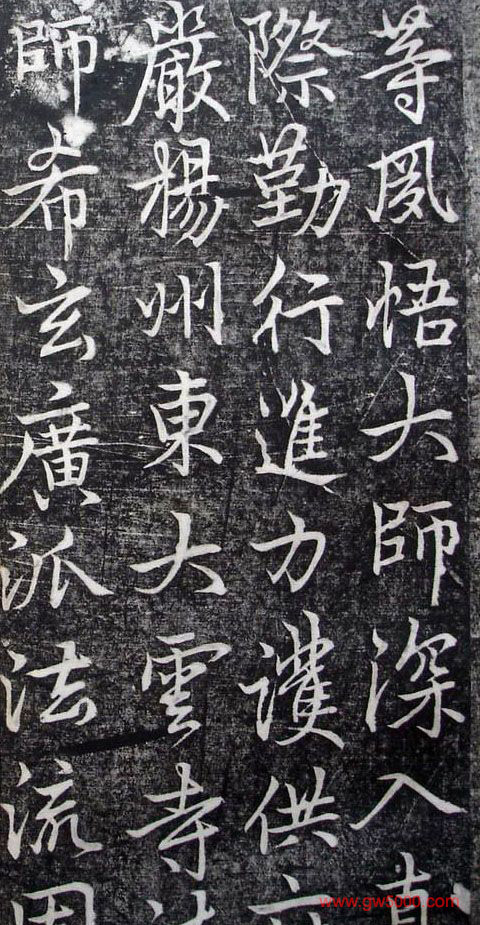 等夙悟大師深入真
際勤行進力護供
嚴楊州東大雲寺法
師希玄廣派法流因
www.gw5000.com